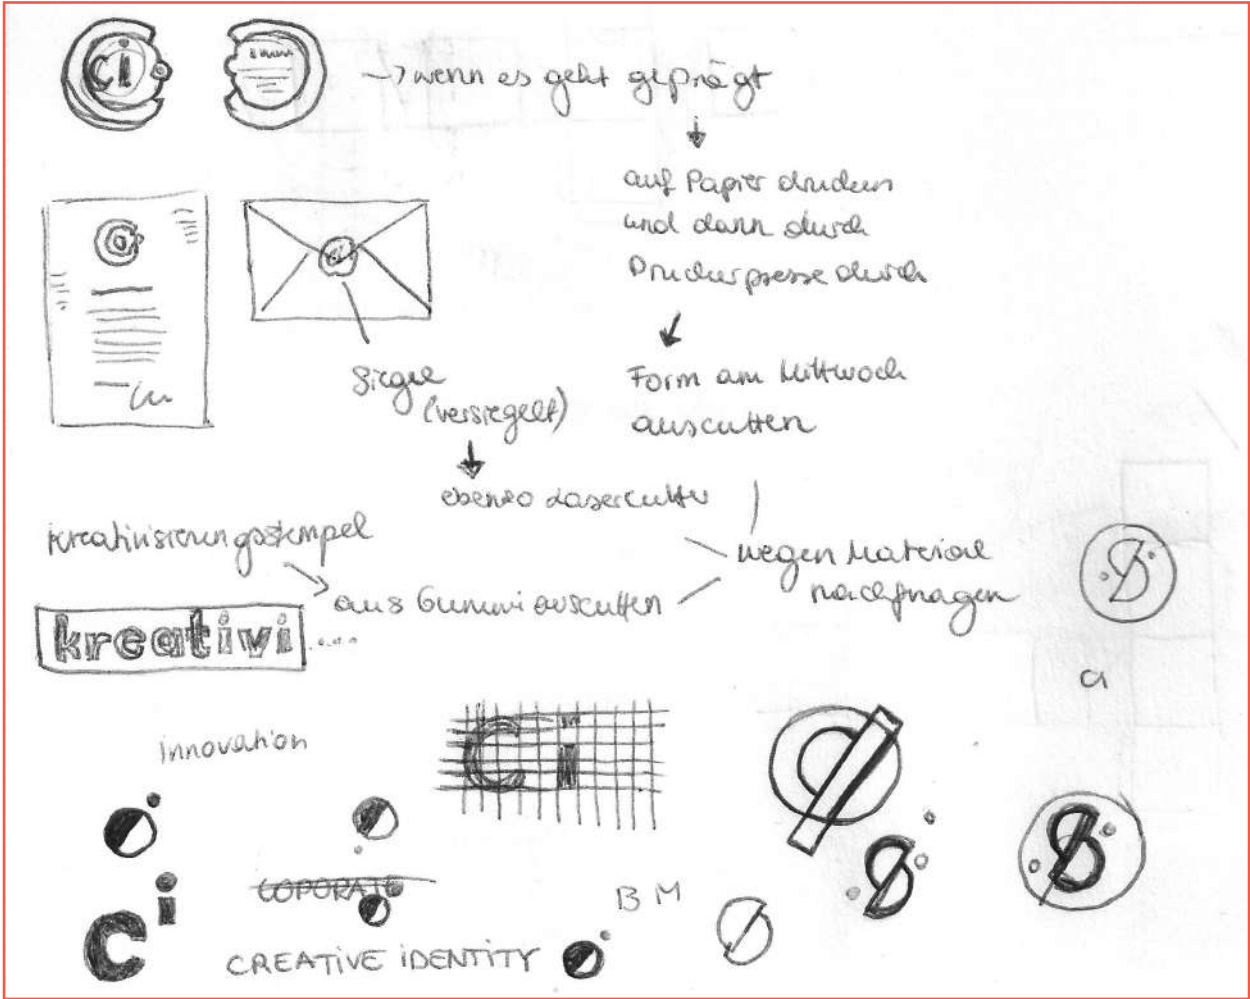 ci
→ wenn es geht geprägt
auf Papier drucken
und dann durch
Druckerpresse durch
Form am Mittwoch
auscutten
ci
Siegel
(versiegelt)
ebenso Lasercutter
kreativisierungsstempel
aus Gummi auscutten
wegen Material
nachfragen
kreativi ....
ci
innovation
Ci
ci
COPORATE
BM
CREATIVE iDENTITY